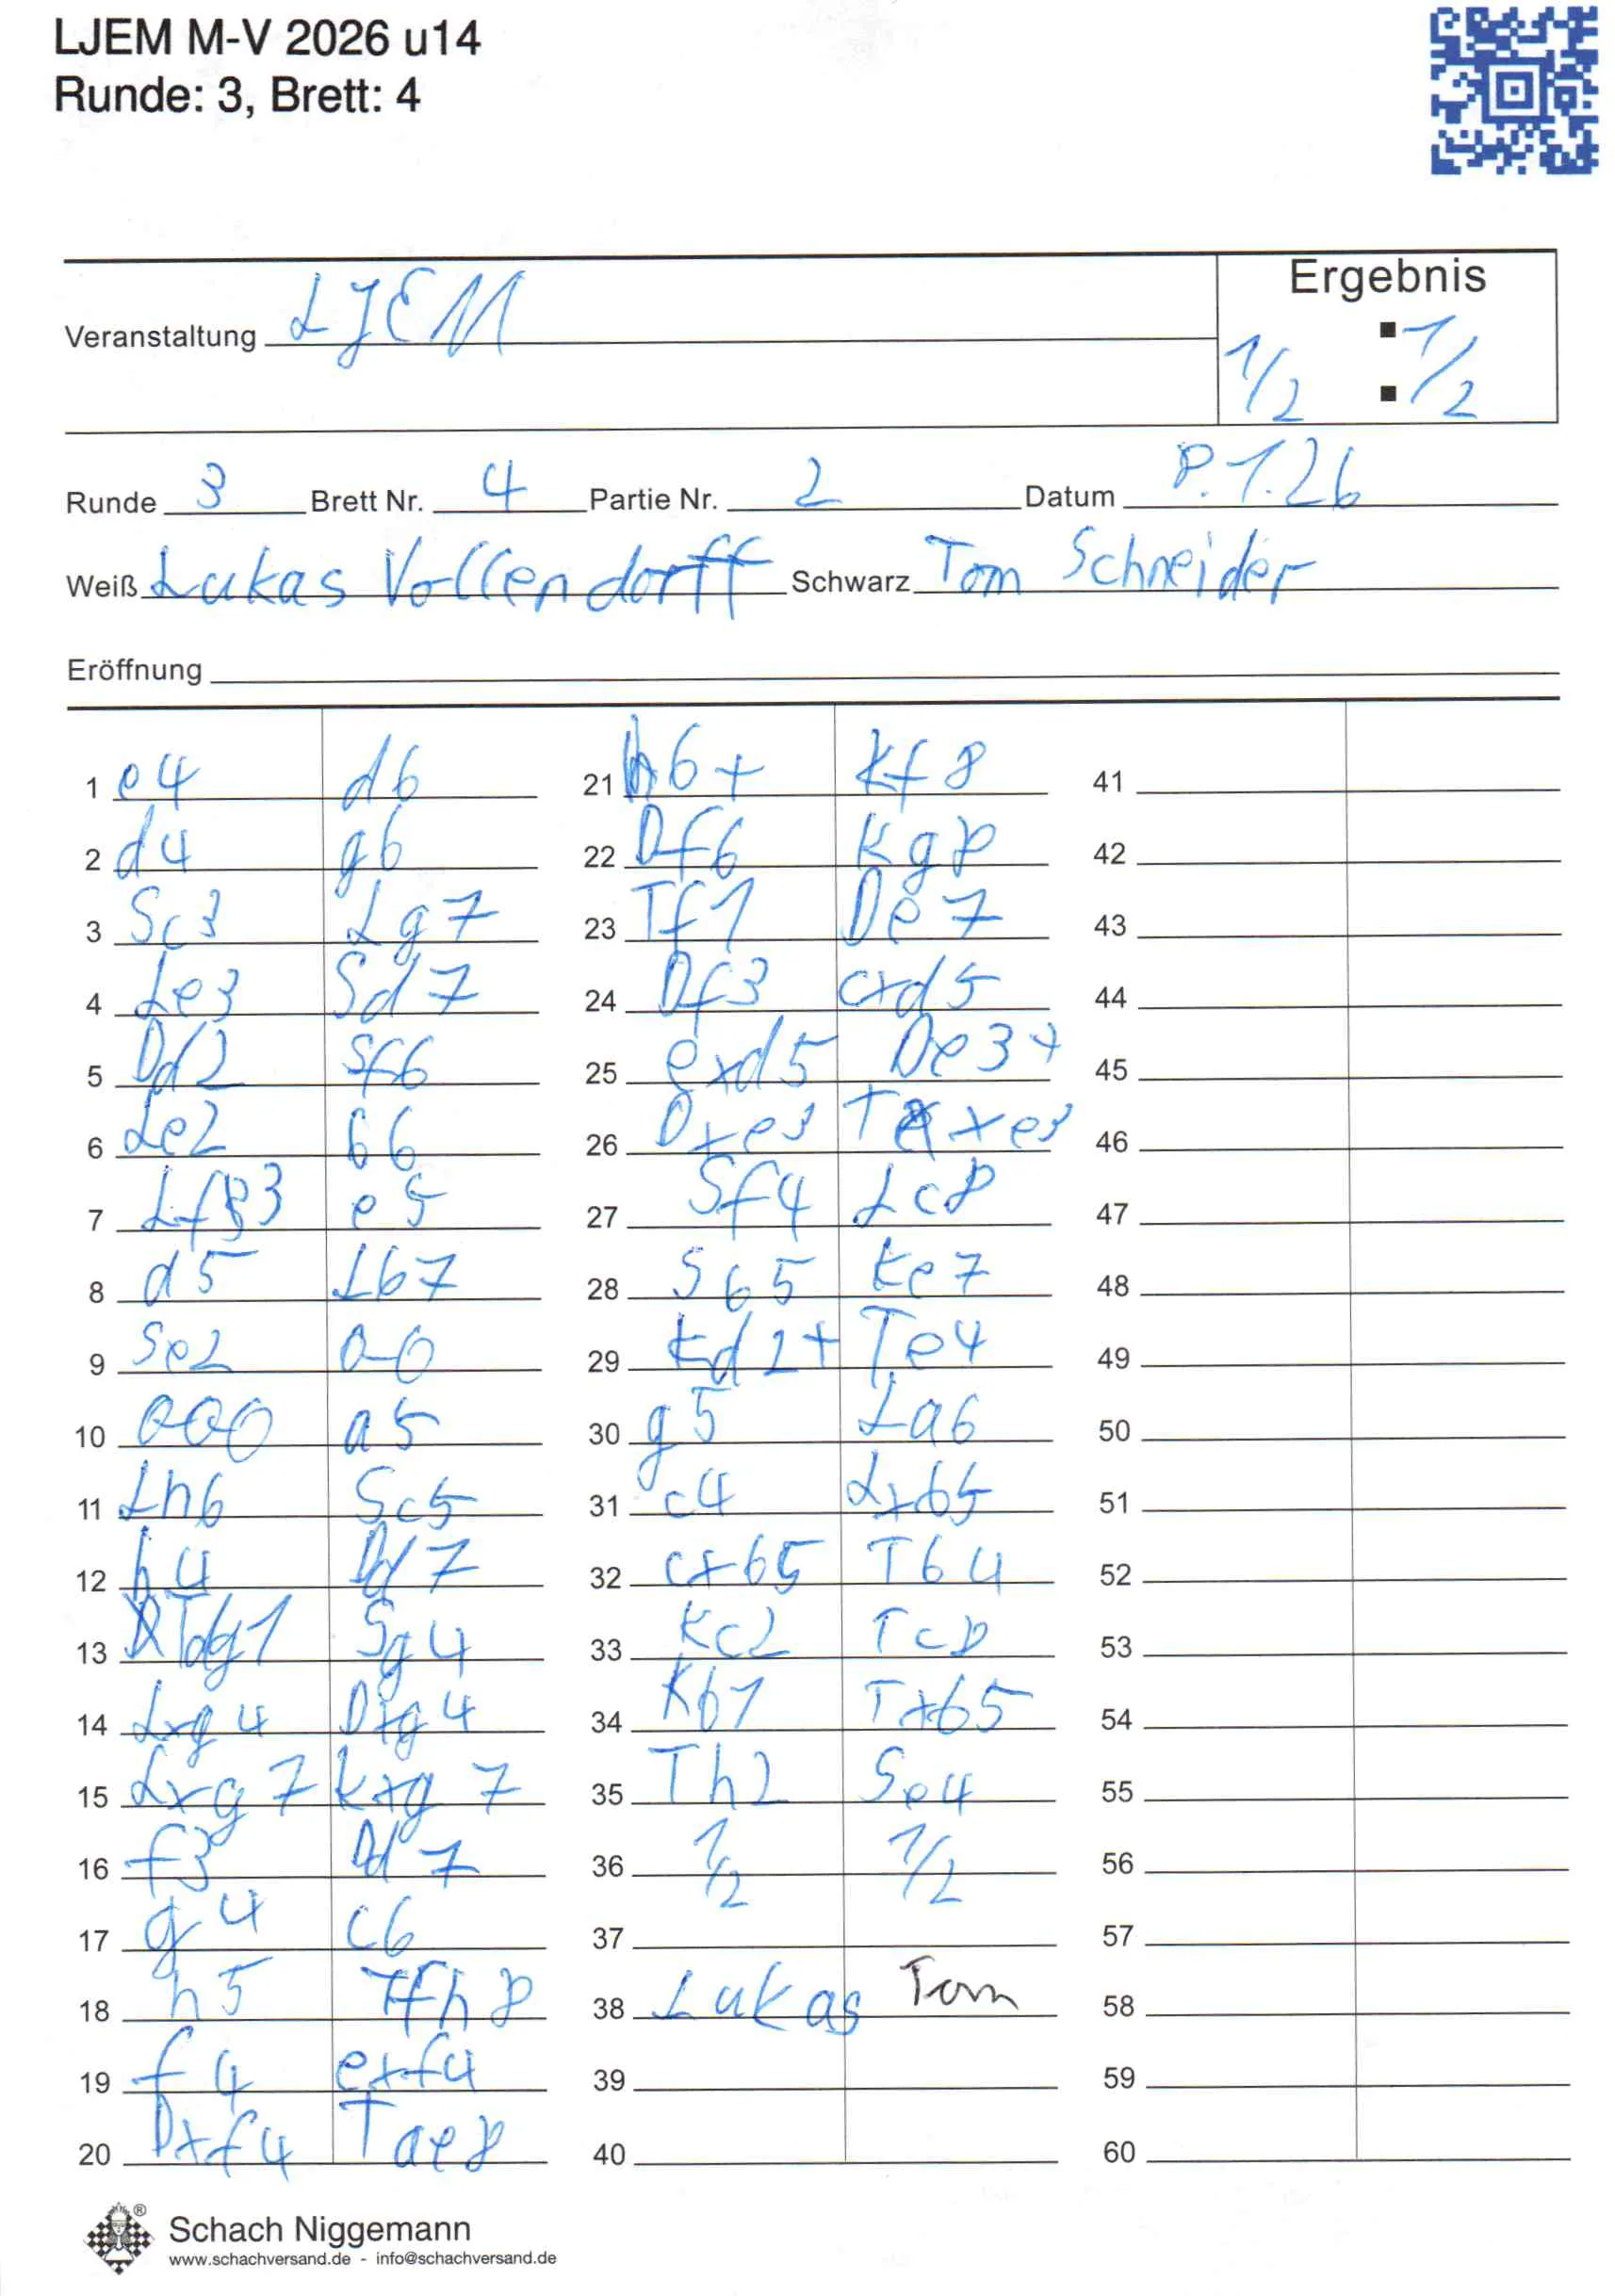 LJEM M-V 2026 u14
Runde: 3, Brett: 4
Ergebnis
Veranstaltung LJEM
1/2 : 1/2
Runde 3 Brett Nr. 4 Partie Nr. 2 Datum 8.1.26
Weiß Lukas Vollendorff Schwarz Tom Schneider
Eröffnung
1 e4 d6
2 d4 g6
3 Sc3 Lg7
4 Le3 Sd7
5 Dd2 Sf6
6 Le2 b6
7 Lf3 e5
8 d5 Lb7
9 Se2 0-0
10 000 a5
11 Lh6 Sc5
12 h4 Dd7
13 Tdg1 Sg4
14 Lxg4 Dxg4
15 Lxg7 Kxg7
16 f3 Dd7
17 g4 c6
18 h5 Tfh8
19 f4 exf4
20 Dxf4 Tae8
21 h6+ Kf8
22 Df6 Kg8
23 Tf1 De7
24 Df3 cxd5
25 exd5 De3+
26 Dxe3 Txe3
27 Sf4 Lc8
28 Sb5 Ke7
29 Kd2+ Te4
30 g5 La6
31 c4 Lxb5
32 cxb5 Tb4
33 Kc2 Tc8
34 Kb1 Txb5
35 Th2 Se4
36 1/2 1/2
37
38 Lukas Tom
39
40
41
42
43
44
45
46
47
48
49
50
51
52
53
54
55
56
57
58
59
60
® Schach Niggemann
www.schachversand.de - info@schachversand.de